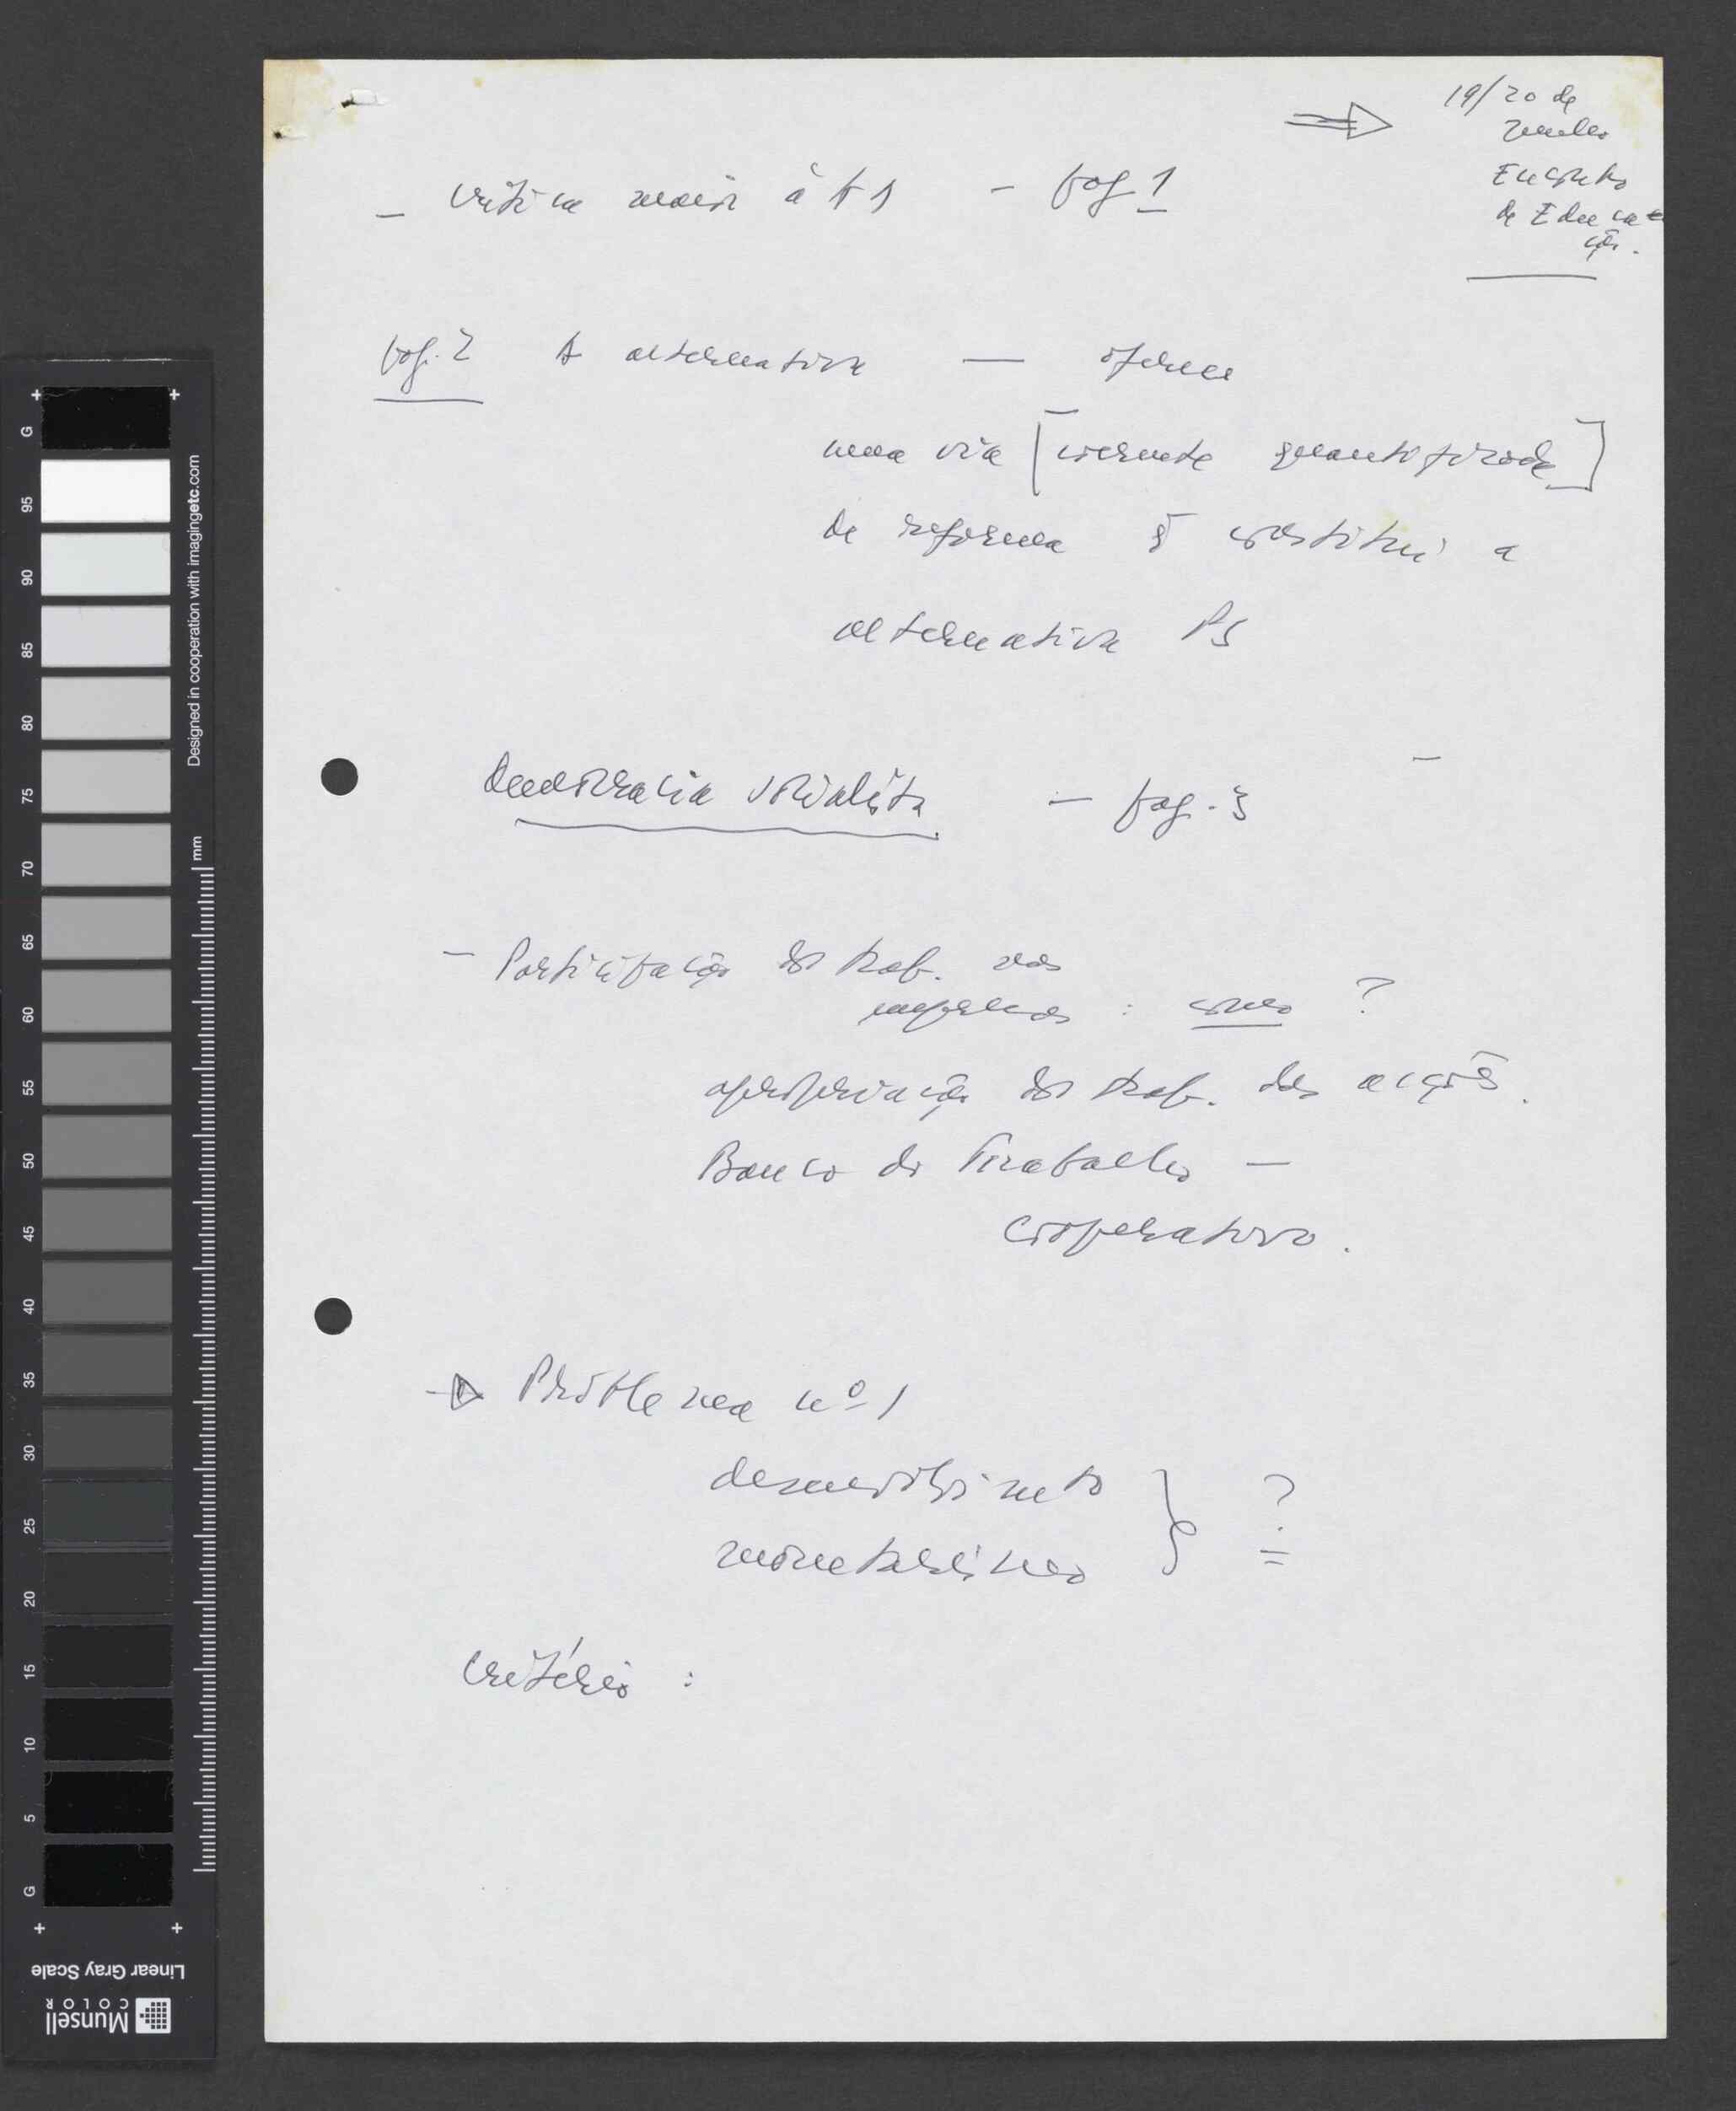 19/20 de
Encontro
de Educa-
ção.
– Crítica maior à – pag 1
pag. 2 A alternativa — oferece
uma via [coerente quantificada]
de reforma q̃ constitui a
alternativa PS
democracia socialista — pag. 3
– Participação dos trab. nas
empresas : como ?
apropriação dos trab. das acções.
Banco do Trabalho —
cooperativo.
Problema nº 1
desenvolvimento
monetarismo } ?
Critério :
G 95 90 85 80 75 70 65 60 55 50 45 40 35 30 25 20 15 10 5 G
mm
Designed in cooperation with imagingetc.com
Linear Gray Scale
Munsell
COLOR